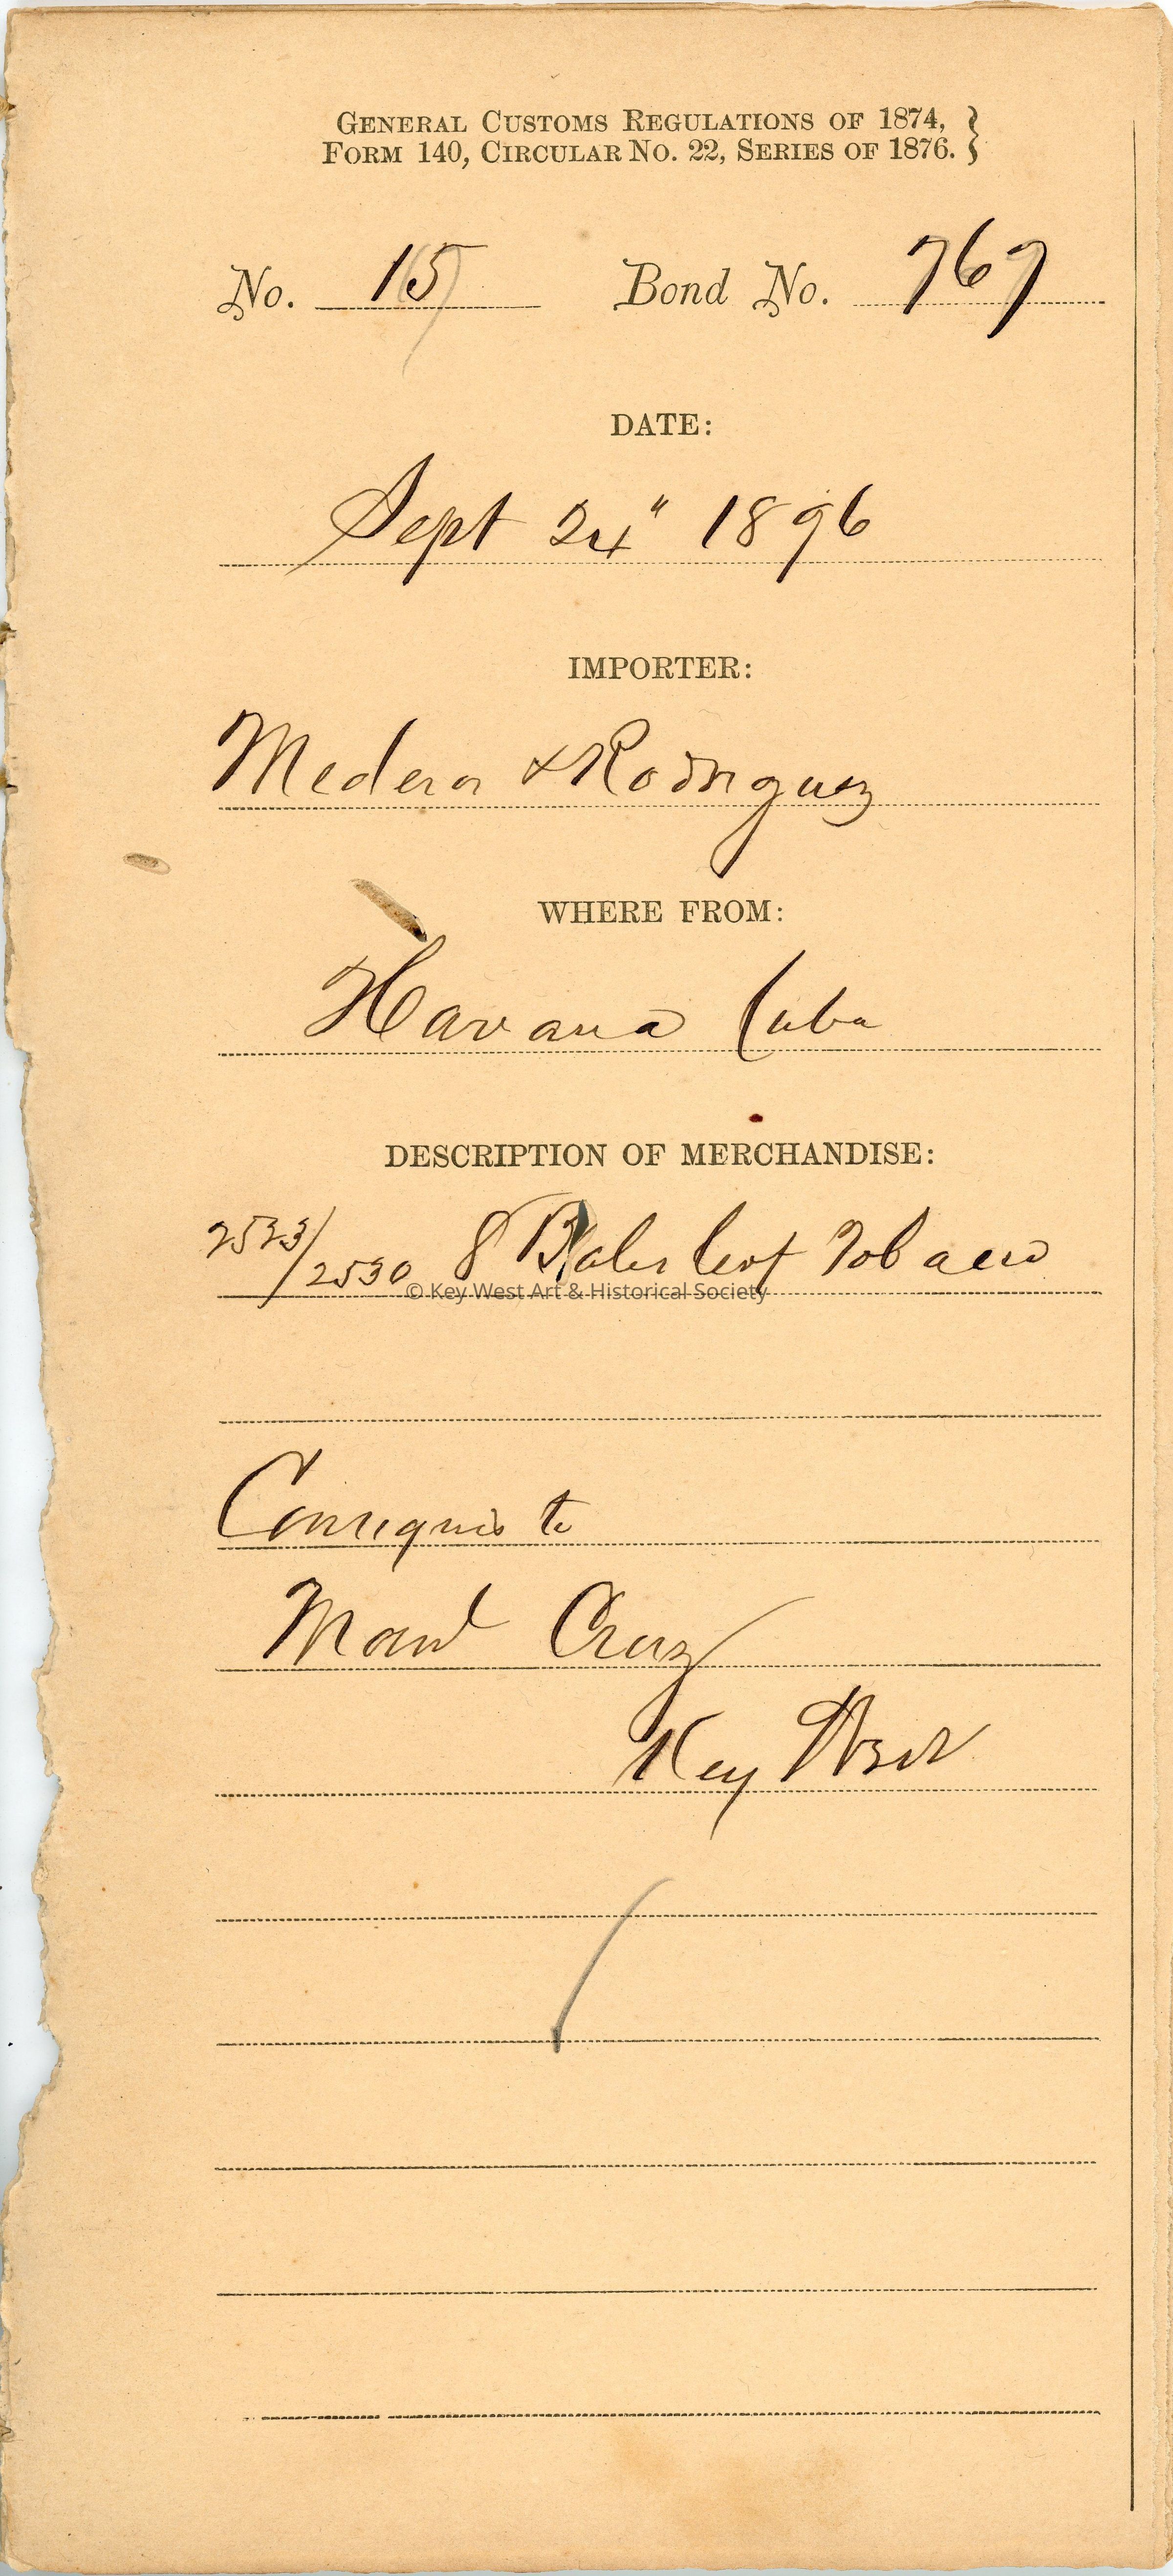 GENERAL CUSTOMS REGULATIONS OF 1874, }
FORM 140, CIRCULAR NO. 22, SERIES OF 1876. }
No. 15 Bond No. 767
DATE:
Sept 24" 1896
IMPORTER:
Medero & Rodriguez
WHERE FROM:
Havana Cuba
DESCRIPTION OF MERCHANDISE:
2523/2530 8 Bales leaf Tobacco
© Key West Art & Historical Society
to
Cruz
Key West